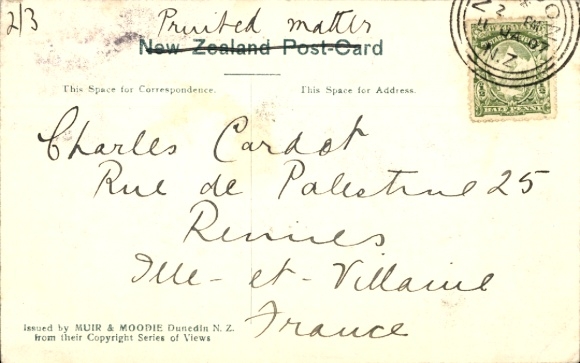 2/3
Printed matter
New Zealand Post-Card
This Space for Correspondence.
This Space for Address.
Charles Cardot
Rue de Palestine 25
Rennes
Ille-et-Villaine
France
HALF PENNY
N.Z.
Issued by MUIR & MOODIE Dunedin N. Z.
from their Copyright Series of Views